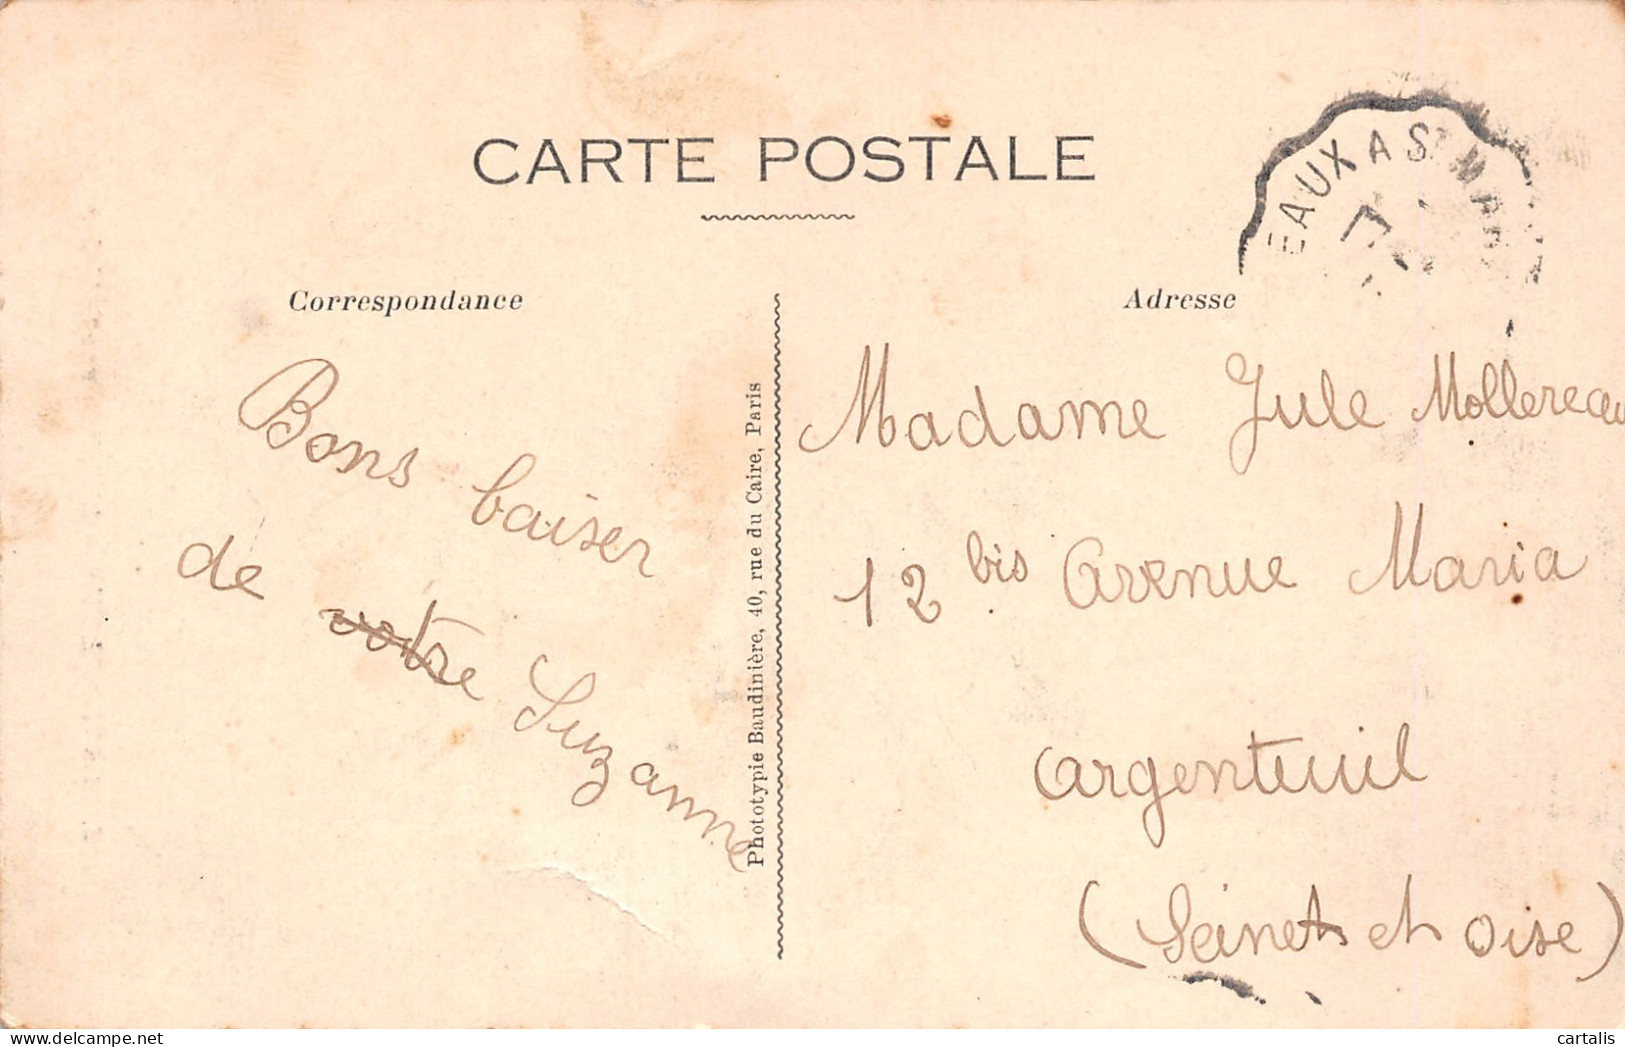 CARTE POSTALE
EAUX A ST MA
Correspondance
Adresse
Bons baiser
de votre Suzanne
Phototypie Baudinière, 40, rue du Caire, Paris
Madame Jule Mollereau
12 bis Avenue Maria
Argenteuil
(Seinet et oise)
cartalis